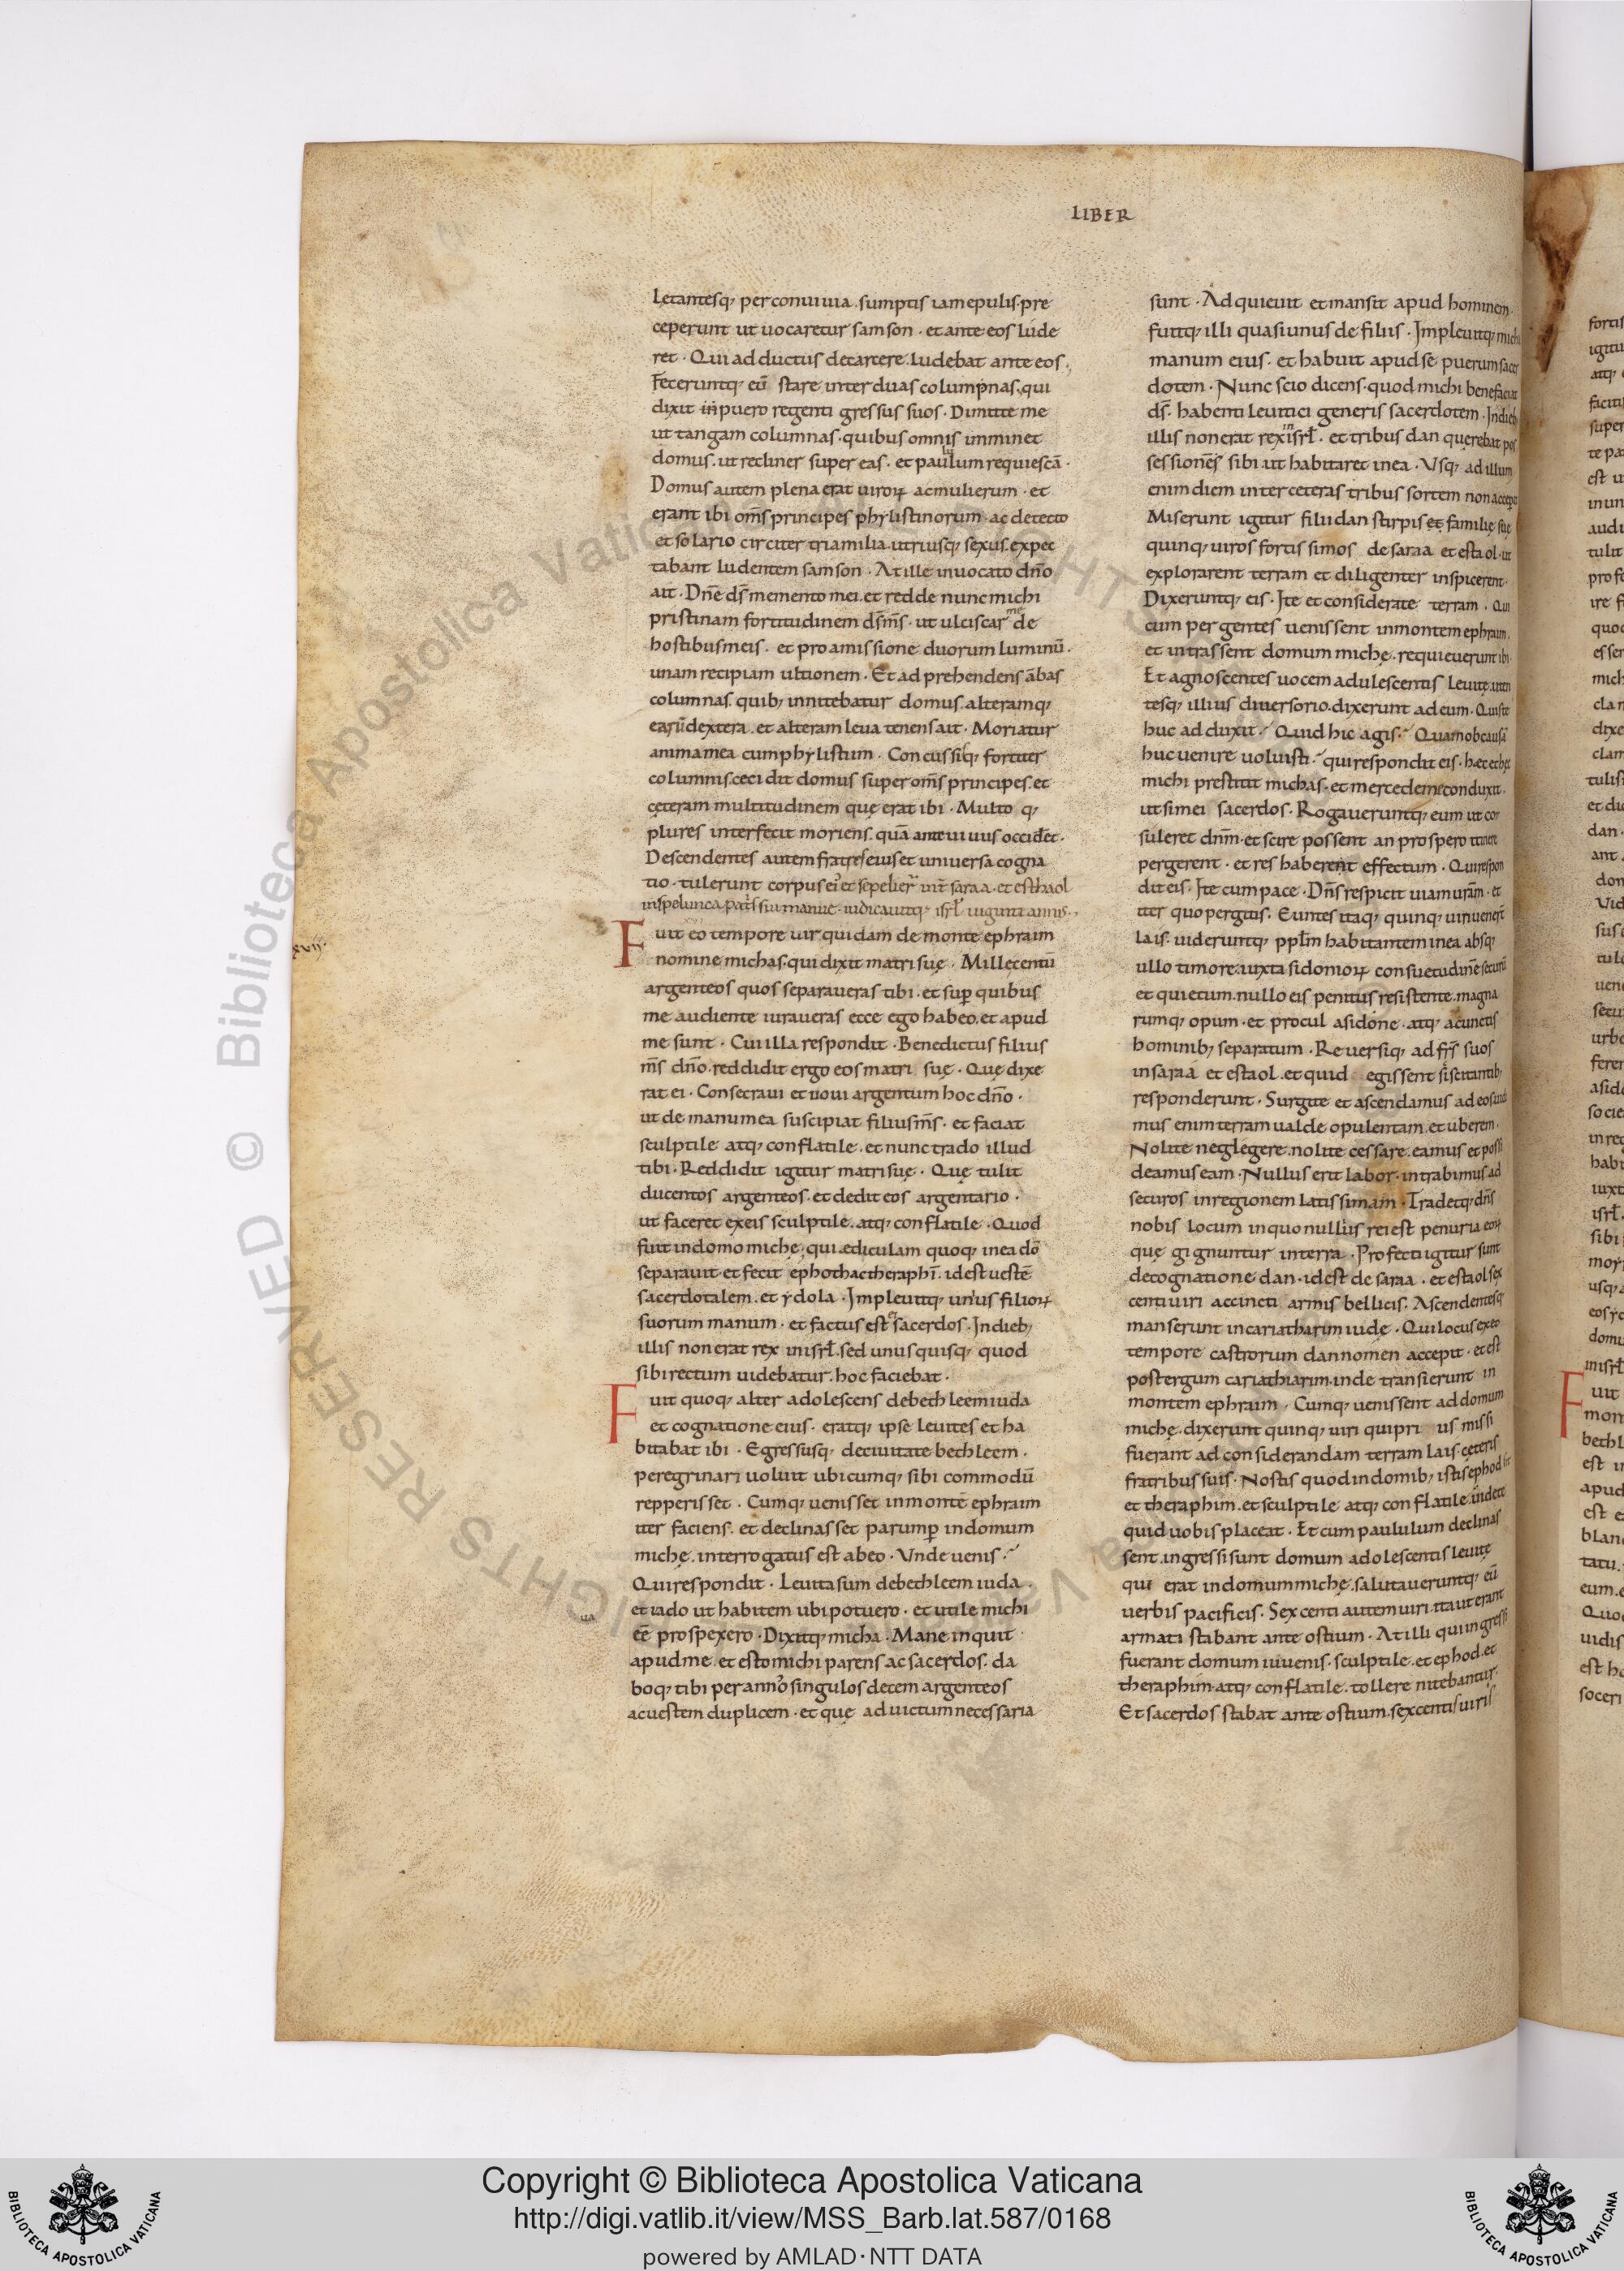 LIBER
Lętantesq; per conuiuia. sumptis iam epulis. pre
ceperunt ut uocaretur samson. et ante eos lude
ret. Qui adductus decarcere. ludebat ante eos.
Feceruntq; eū stare inter duas columpnas. qui
dixit puero regenti gressus suos. Dimitte me
ut tangam columnas. quibus omnis imminet
domus. ut recliner super eas. et paululum requiescā.
Domus autem plena erat uiroꝝ ac mulierum. et
erant ibi om̅s principes phylistinorum. ac detecto
et solario circiter tria milia. utriusq; sexus. expec
tabant ludentem samson. At ille inuocato dn̅o
ait. Dn̅e ds̅ memento mei. et redde nunc michi
pristinam fortitudinem ds̅ ms̅. ut ulciscar me de
hostibus meis. et pro amissione duorum luminū.
unam recipiam ultionem. Et adprehendens ābas
columnas. quib; innitebatur domus. alteramq;
earū dextera. et alteram leua tenens ait. Moriatur
anima mea cum phylistum. Concussisq; fortiter
columnis. cecidit domus super om̅s principes. et
ceteram multitudinem quę erat ibi. Multo q;
plures interfecit moriens. quā ante uiuus occiderat.
Descendentes autem fratres eius et uniuersa cogna
tio. tulerunt corpus ei' et sepelier̅ int̅ saraa. et esthaol
inspelunca pat̅s sui manue. iudicauitq; isrł uiginti annis.
xvii.
Fuit eo tempore uir quidam de monte ephraim
nomine michas. qui dixit matri suę. Mille centū
argenteos quos separaueras tibi. et suꝑ quibus
me audiente iuraueras ecce ego habeo. et apud
me sunt. Cui illa respondit. Benedictus filius
ms̅ dn̅o. reddidit ergo eos matri suę. Quę dixe
rat ei. Consecraui et uoui argentum hoc dn̅o.
ut de manu mea suscipiat filius ms̅. et faciat
sculptile atq; conflatile. et nunc trado illud
tibi. Reddidit igitur matri suę. Quę tulit
ducentos argenteos. et dedit eos argentario.
ut faceret ex eis sculptile. atq; conflatile. Quod
fuit in domo michę. qui ædiculam quoq; in ea dō
separauit. et fecit ephoth ac theraphī. idest uestē
sacerdotalem. et ydola. Impleuitq; unius filioꝝ
suorum manum. et factus est ei sacerdos. In dieb;
illis non erat rex in isrł. sed unusquisq; quod
sibi rectum uidebatur. hoc faciebat.
Fuit quoq; alter adolescens de bethleem iuda
et cognatione eius. eratq; ipse leuites et ha
bitabat ibi. Egressusq; de ciuitate bethleem.
peregrinari uoluit ubicumq; sibi commodū
repperisset. Cumq; uenisset in monte ephraim
iter faciens. et declinasset parumꝑ in domum
michę. interrogatus est ab eo. Unde uenis?
Qui respondit. Leuita sum de bethleem iuda.
ua
et uado ut habitem ubi potuero. et utile michi
ee̅ prospexero. Dixitq; micha. Mane inquit
apud me. et esto michi parens ac sacerdos. da
boq; tibi per annos singulos decem argenteos
ac uestem duplicem. et quę ad uictum necessaria
sunt. Adquieuit et mansit apud hominem.
fuitq; illi quasi unus de filiis. Impleuitq; michas
manum eius. et habuit apud se puerum sacer
dotem. Nunc scio dicens. quod michi benefaciat
ds̅. habenti leuitici generis sacerdotem. In dieb;
illis non erat rex in isrł. et tribus dan querebat pos
sessiones sibi ut habitaret in ea. Vsq; ad illum
enim diem inter ceteras tribus sortem non acceperat
Miserunt igitur filii dan stirpis et familię suę
quinq; uiros fortissimos de saraa et estaol. ut
explorarent terram et diligenter inspicerent.
Dixeruntq; eis. Ite et considerate terram. Qui
cum pergentes uenissent in montem ephraim.
et intrassent domum michę. requieuerunt ibi.
Et agnoscentes uocem adulescentis leuitę. uten
tesq; illius diuersorio. dixerunt ad eum. Quis te
huc adduxit? Quid hic agis? Quam ob causā
huc uenire uoluisti? qui respondit eis. hæc et hęc
michi prestitit michas. et mercede me conduxit.
ut sim ei sacerdos. Rogaueruntq; eum ut con
suleret dn̅m. et scire possent an prospero itinere
pergerent. et res haberent effectum. Qui respon
dit eis. Ite cum pace. Dn̅s respicit uiam uram̅. et
iter quo pergitis. Euntes itaq; quinq; uiri uenert̅
lais. uideruntq; ppl̅m habitantem in ea absq;
ullo timore. iuxta sidonioꝝ consuetudinē securū
et quietum. nullo eis penitus resistente. magna
rumq; opum. et procul a sidone. atq; a cunctis
hominib; separatum. Reuersiq; ad frs̅ suos
in saraa et estaol. et quid egissent sciscitantib;
responderunt. Surgite et ascendamus ad eos. uidi
mus enim terram ualde opulentam. et uberem.
Nolite neglegere. nolite cessare. eamus et possi
deamus eam. Nullus erit labor. intrabimus ad
securos in regionem latissimam. Tradetq; dn̅s
nobis locum in quo nullius rei est penuria eoꝝ
quę gignuntur in terra. Profecti igitur sunt
de cognatione dan. idest de saraa. et estaol sex
centi uiri accincti armis bellicis. Ascendentesq;
manserunt in cariatharim iudę. Qui locus ex eo
tempore castrorum dan nomen accepit. et est
post ergum cariathiarim. inde transierunt in
montem ephraim. Cumq; uenissent ad domum
michę. dixerunt quinq; uiri qui prius missi
fuerant ad considerandam terram lais. ceteris
fratribus suis. Nostis quod in domib; istis ephod sit
et theraphim. et sculptile atq; conflatile. uidete
quid uobis placeat. Et cum paululum declinas
sent. ingressi sunt domum adolescentis leuitę
qui erat in domum michę. salutaueruntq; eū
uerbis pacificis. Sexcenti autem uiri ita ut erant
armati stabant ante ostium. At illi qui ingressi
fuerant domum iuuenis. sculptile. et ephod. et
theraphim. atq; conflatile. tollere nitebantur.
Et sacerdos stabat ante ostium. sexcentis uiris
Copyright © Biblioteca Apostolica Vaticana
http://digi.vatlib.it/view/MSS_Barb.lat.587/0168
powered by AMLAD·NTT DATA
BIBLIOTECA APOSTOLICA VATICANA
BIBLIOTECA APOSTOLICA VATICANA